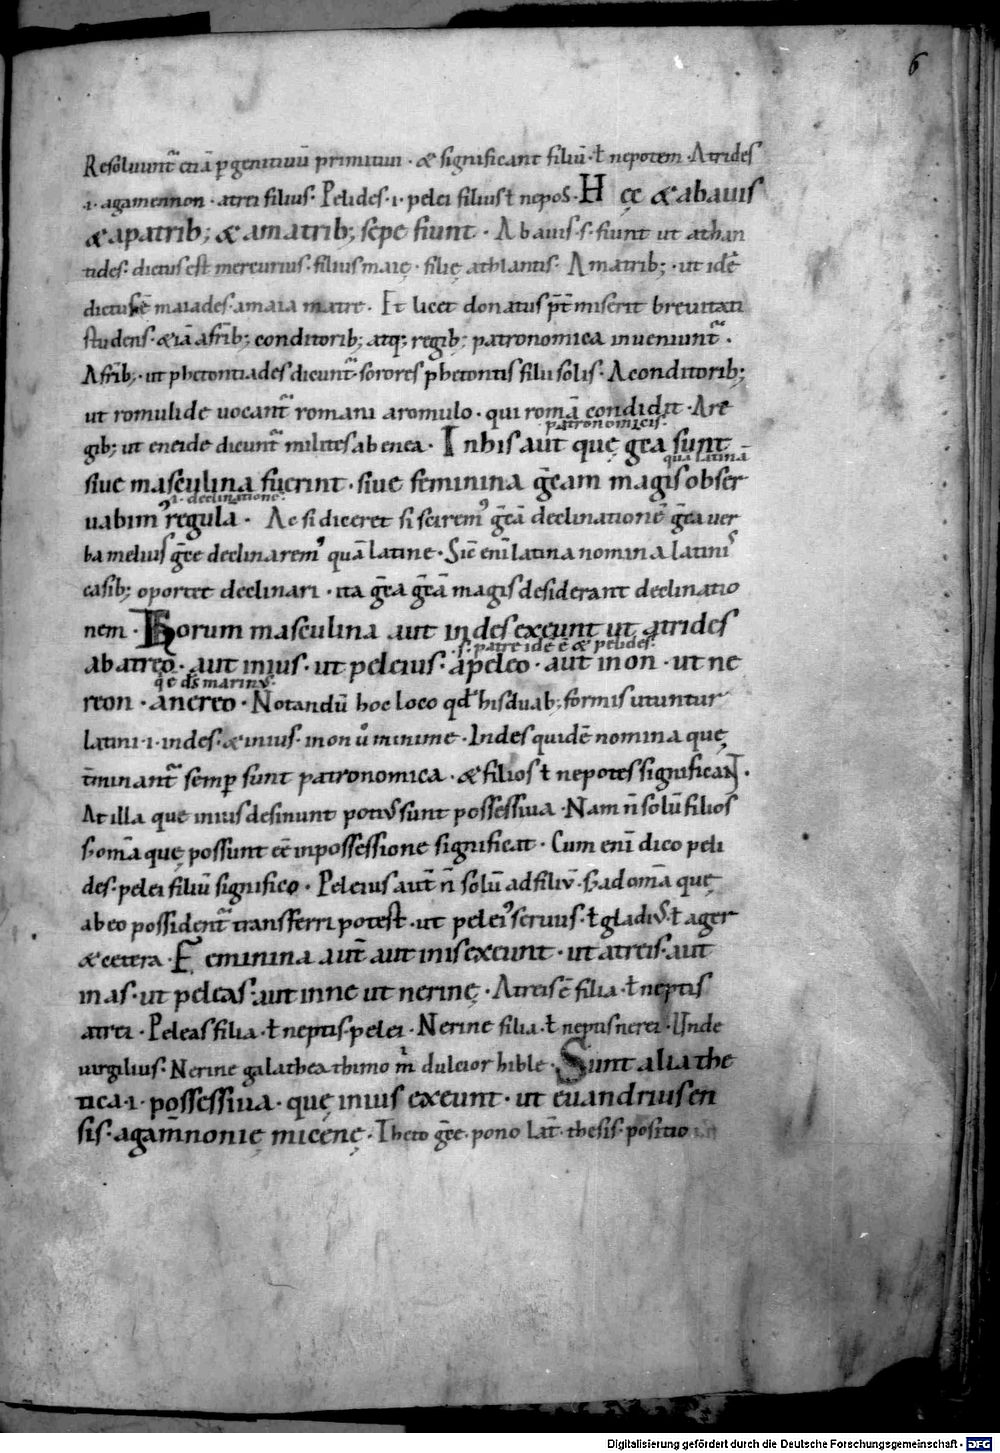 6
Resoluunt᷑ etiā p genitiuū primitiui · & significant filiū · ł nepotem · Atrides
·i· agamennon · atrei filius · Pelides ·i· pelei filius ł nepos · Hęc & ab auis
& a patrib; & a matrib; sępe fiunt · Ab auis ·s· fiunt ut athan
tides · dictus est mercurius · filius maię · filię athlantis · A matrib; · ut idē
dictus ē maiades · a maia matre · Et licet donatus p̄t̄miserit breuitati
studens · & iā a frīb; conditorib; atq; regib; patronomica inueniunt᷑ ·
A frīb; · ut phetontiades dicunt᷑ sorores phetontis filii solis · A conditorib;
ut romulide uocant᷑ romani a romulo · qui romā condidit · A re
patronomicis ·
gib; ut eneide dicunt᷑ milites ab enea · In his aut̄ quę gr̄a sunt
quā latinā
siue masculina fuerint · siue feminina gr̄eam magis obser
·i· declinatione ·
uabim᷒ regula · Ac si diceret si scirem᷒ gr̄eā declinationē gr̄ea uer
ba melius gr̄ee declinarem᷒ quā latine · Sic̄ enī latina nomina latinis
casib; oportet declinari · ita gr̄ea gr̄eā magis desiderant declinatio
nem · Horum masculina aut in des exeunt ut atrides
·s· patre ide ē & pelides ·
ab atreo · aut in ius · ut peleius · a peleo · aut in on · ut ne
q̄ ē d̄s marin᷒ ·
reon · a nereo · Notandū hoc loco qd̄ his duab; formis utuntur
latini ·i· in des · & in ius · in on ů minime · In des quidē nomina quę
t̄minant᷑ semp sunt patronomica · & filios ł nepotes significant ·
At illa quę in ius desinunt poti᷒ sunt possessiua · Nam n̄ solū filios
s; omā quę possunt eē in possessione significat · Cum enī dico peli
des · pelei filiū significo · Peleius aut̄ n̄ solū ad filiū · s; ad omā quę
ab eo possident᷑ transferri potest · ut pelei᷒ seruus · ł gladi᷒ · ł ager
& cetera · Feminina aut̄ aut in is exeunt · ut atreis · aut
in as · ut peleas · aut in ne ut nerinę · Atreis ē filia · ł neptis
atrei · Peleas filia · ł neptis · pelei · Nerine filia · ł neptis nerei · Unde
uirgilius · Nerine galathea thimo m̄ dulcior hible · Sunt alia the
tica ·i· possessiua · quę in ius exeunt · ut euandrius en
sis · agam̄nonię micenę · Theto gr̄ee · pono lat̄ · thesis · positio
Digitalisierung gefördert durch die Deutsche Forschungsgemeinschaft - DFG